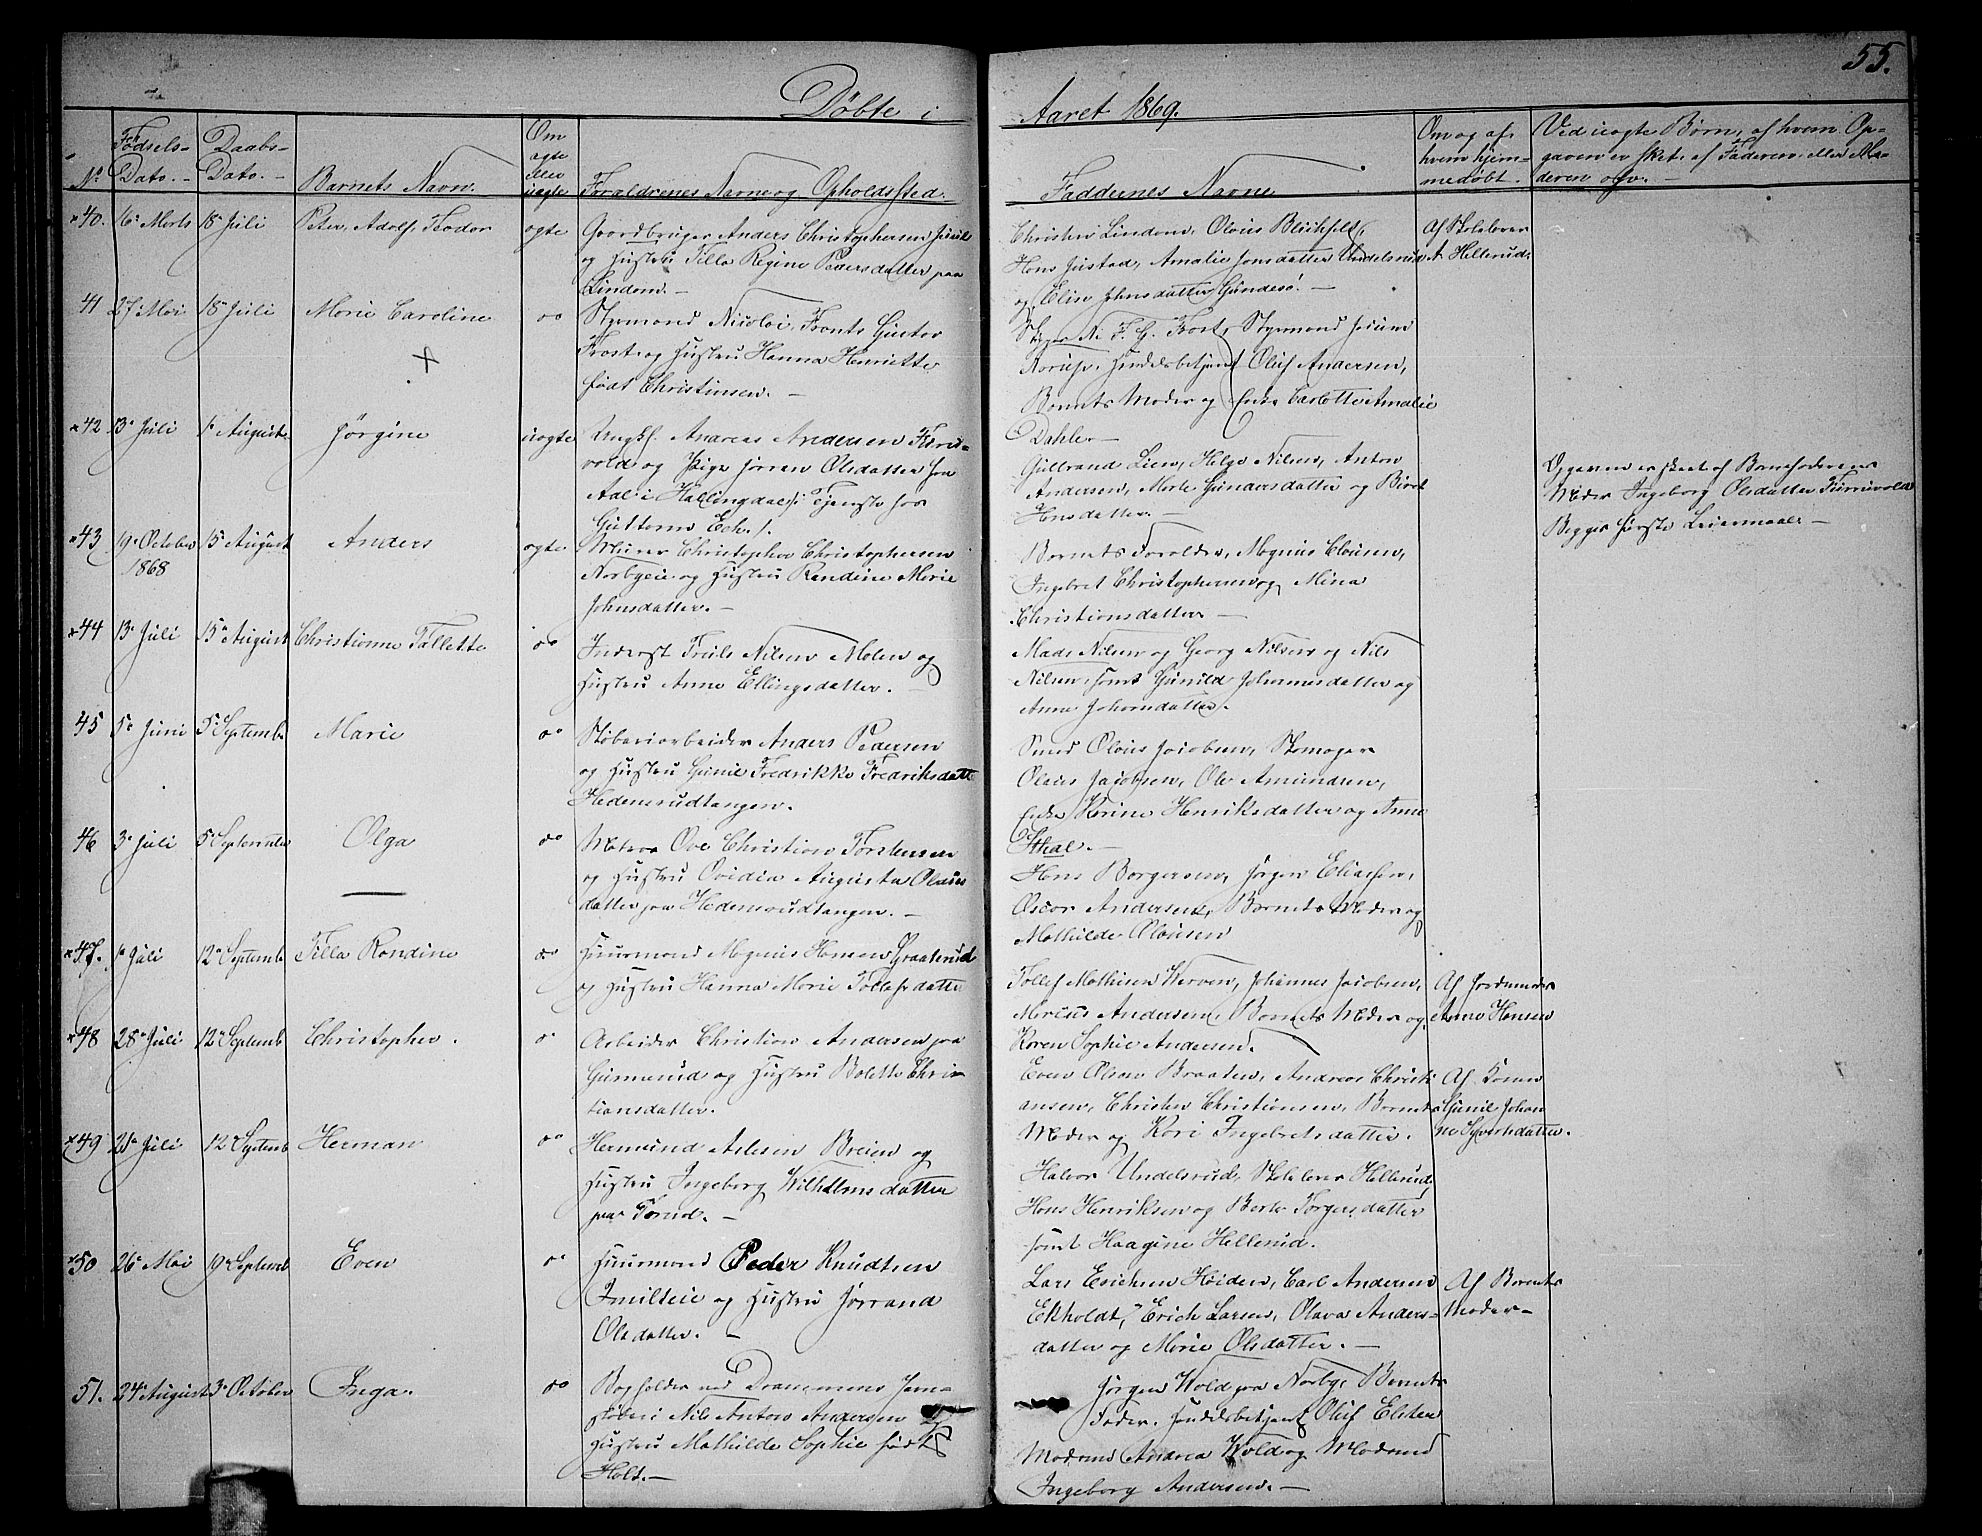 55.
Döbte i Aaret 1869.
No. Födsels-Dato. Daabs-Dato. Barnets Navn. Om ægte eller uægte Forældrenes Navne og Opholdssted. Faddernes Navne Om og af hvem hjemmedöbt. Ved uægte Börn, af hvem Opgaven er sket, af Faderen eller Moderen osv.
40. 16 Marts 18 Juli Peter Adolf Teodor ægte Gaardbruger Anders Christophersen
og Hustru Tilla Regine Pedersdatter paa
Lindom.
Christen Lindom, Olaus Blichfeldt,
Hans Justad, Amalie Jonsdatter Undelsrud
og Elise Johnsdatter Gundesö.
Af Skolelærer
A. Hellerud.
41 27 Mai 18 Juli Marie Caroline do Styrmand Nicolai Frants Gustav
Frost og Hustru Hanna Henriette
født Christensen.
N. F. G. Frost, Styrmand
Oluf Andersen,
Barnets Moder og Carlotte Amalie
Dahler
42 13 Juli 1 August Jörgine uægte Ungkf. Andreas Andersen Furu-
vold og Pige Jörran Olsdatter fra
Aal i Hallingdal, i Tjeneste hos
Guttorm Eek.
Gulbrand Lien, Helge Nilsen, Anton
Andersen, Marte Gundersdatter og Biret
Hansdatter.
Opgaven er skeet af Barnefaderens
Moder Ingeborg Olsdatter Furruvold
Begges förste Leiermaal
43 19 October 1868 15 August Anders ægte Murer Christopher Christophersen
Norbyeie og Hustru Randine Marie
Johnsdatter.
Barnets Forældre, Magnus Clausen,
Ingebret Christophersen og Mina
Christiansdatter
44 13 Juli 15 August Christianne Tallette do Inderst Truls Nilsen Molen og
Hustru Anne Ellingsdatter.
Mads Nilsen og Georg Nilsen og Nils
Nilsen, samt Gunild Johannesdatter og
Anne Johansdatter.
45 5 Juni 5 Septemb Marie do Støberiarbeider Anders Pedersen
og Hustru Gunil Fredrikke Fredriksdatt
Hedensrudtangen.
Smed Olaus Jacobsen, Skomager
Olaus Jacobsen, Ole Amundsen,
Enke Karine Henriksdatter og Anne
Sthal.
46 3 Juli 5 September Olga do Matros Ove Christian Torstensen
og Hustru Ovidia Augusta Olaus
datter paa Hedensrudtangen.
Hans Borgersen, Jörgen Eliasen,
Oscar Andersen, Barnets Moder og
Mathilde Olausen
47. 1 Juli 12 Septemb Tilla Randine do Huusmand Magnus Hansen Graaterud
og Hustru Hanna Marie Tollefsdatter
Tollef Mathisen Werven, Johannes Jacobsen,
Marius Andersen, Barnets Moder og
Karen Sophie Andersen.
Af Jordemoder
Anne Hansen
48 28 Juli 12 Septemb Christopher. do Arbeider Christian Andersen paa
Gunnerud og Hustru Bolette Chris
tiansdatter.
Even Olsen Braaten, Andreas Christi
ansen, Christen Christiansen, Barnets
Moder og Kari Ingebretsdatter.
Af Konen
Gunil Johan
ne Syversdatter.
49 21 Juli 12 Septemb Herman do Hermund Aslesen Breien og
Hustru Ingeborg Wilhelmsdatter
paa Tørrud.
Halvor Undelsrud, Skolelærer Hellerud,
Hans Henriksen og Berte Torgersdatter
samt Haagine Hellerud.
50 26 Mai 19 Septemb Even do Huusmand Peder Knudtsen
Smilteie og Hustru Jørrand
Olsdatter.
Lars Erichsen Heiden, Carl Andersen
Ekholdt, Erich Larsen, Olava Anders-
datter og Marie Olsdatter.
Af Barnets
Moder
51. 24 August 3 October Inga. do Bogholder ved Drammens Jern-
støberi Nils Anton Andersen og
Hustru Mathilde Sophie født
Holst.
Jørgen Wold paa Norby, Barnets
Fader, Oluf Elsten
Madame Andrea Wold og Madame
Ingeborg Andersen.